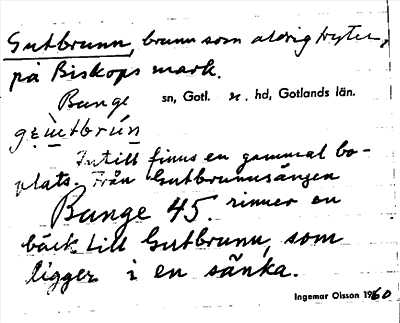 Gutbrunn, brunn som aldrig tryter,
på Biskops mark.
Bunge sn, Gotl. n. hd, Gotlands län.
gẹ̀ùtbrún
Intill finns en gammal bo-
plats. Från Gutbrunnsängen
Bunge 45. rinner en
bäck till Gutbrunn, som
ligger i en sänka.
Ingemar Olsson 1960